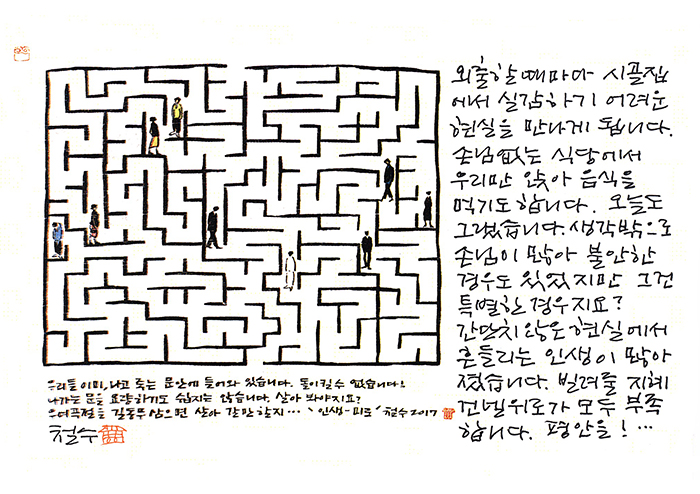 외출할 때마다 시골집
에서 실감하기 어려운
현실을 만나게 됩니다.
손님 없는 식당에서
우리만 앉아 음식을
먹기도 합니다. 오늘도
그랬습니다. 생각밖으로
손님이 많아 불안한
경우도 있었지만 그건
특별한 경우지요?
간단치 않은 현실에서
흔들리는 인생이 많아
졌습니다. 빌려줄 지혜
건넬 위로가 모두 부족
합니다. 평안을! …
우리들 이미, 나고 죽는 문안에 들어와 있습니다. 돌이킬 수 없습니다!
나가는 문을 요량하기도 쉽지는 않습니다. 살아 봐야지요?
우여곡절을 길동무 삼으면 살아 갈만 할지… '인생-미로' 철수 2017
철수